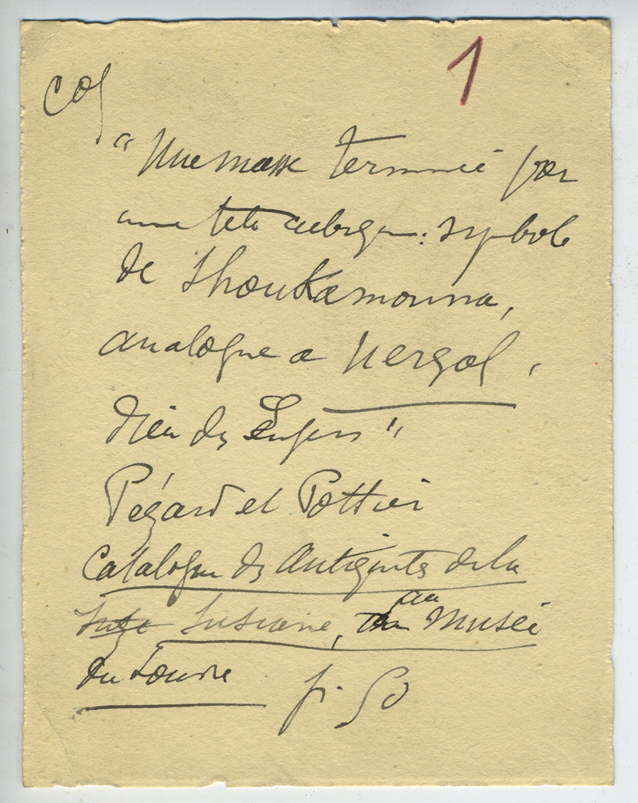 1
cof
"Une masse terminée par
une tete cubique: symbole
de Shoukamouna,
analogue a Nergol,
dieu des Enfers"
Pézard et Pottier
Catalogue des Antiquités de la
Susiane, au Musée
du Louvre p. 50